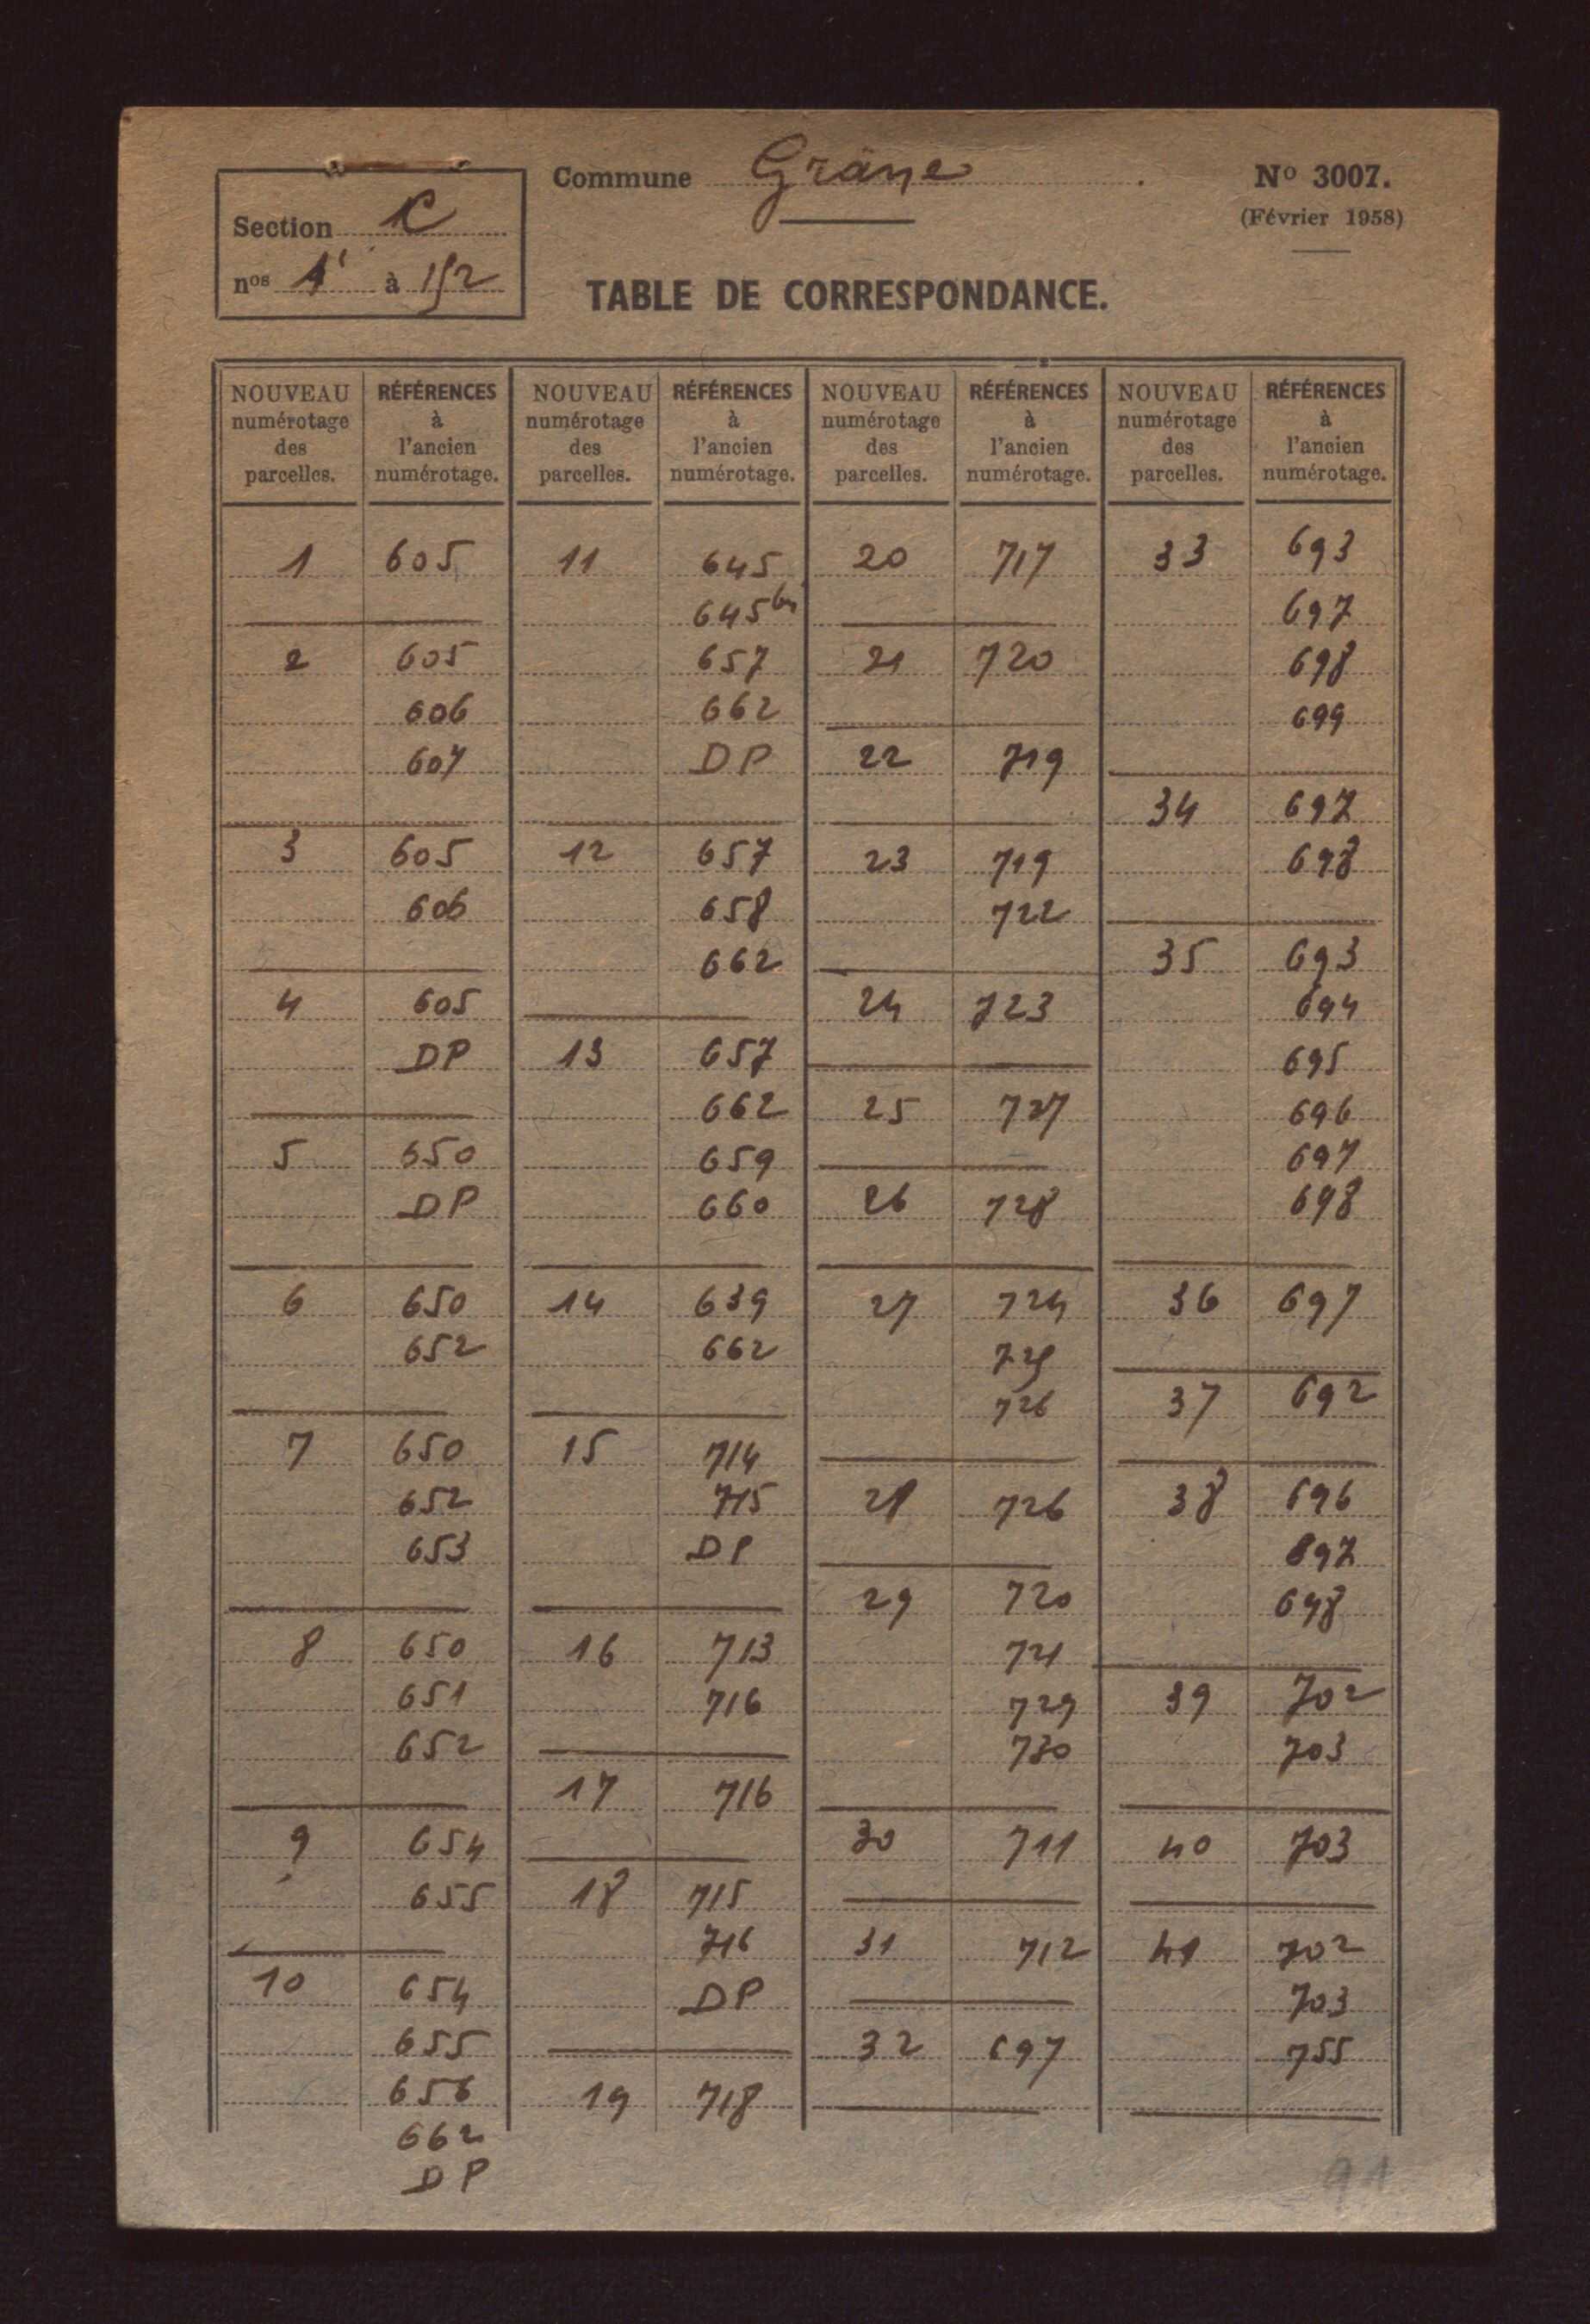 Commune Grâne
N° 3007.
(Février 1958)
Section C
nos 1 à 152
TABLE DE CORRESPONDANCE.
NOUVEAU numérotage des parcelles. RÉFÉRENCES à l'ancien numérotage.
1 605
2 605
606
607
3 605
606
4 605
DP
5 650
DP
6 650
652
7 650
652
653
8 650
651
652
9 654
655
10 654
655
656
662
DP
NOUVEAU numérotage des parcelles. RÉFÉRENCES à l'ancien numérotage.
11 645
645 bis
657
662
DP
12 657
658
662
13 657
662
659
660
14 639
662
15 714
715
DP
16 713
716
17 716
18 715
716
DP
19 718
NOUVEAU numérotage des parcelles. RÉFÉRENCES à l'ancien numérotage.
20 717
21 720
22 719
23 719
722
24 723
25 727
26 728
27 724
725
726
28 726
29 720
721
729
730
30 711
31 712
32 697
NOUVEAU numérotage des parcelles. RÉFÉRENCES à l'ancien numérotage.
33 693
697
698
699
34 697
698
35 693
694
695
696
697
698
36 697
37 692
38 696
697
698
39 702
703
40 703
41 702
703
755
91